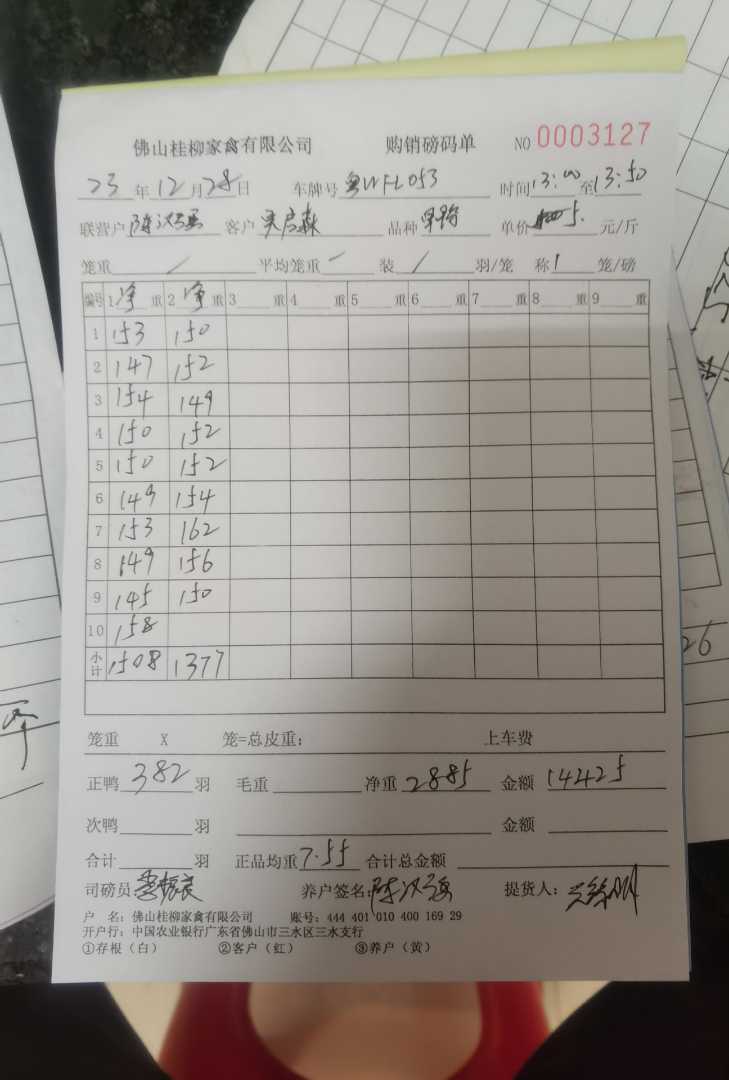 佛山桂柳家禽有限公司 购销磅码单 NO 0003127
23 年 12 月 28 日 车牌号 粤WFL053 时间 13:00 至 13:50
联营户 陈汉强 客户 吴启森 品种 单价 5. 元/斤
笼重 / 平均笼重 — 装 / 羽/笼 称 1 笼/磅
编号 1 净 重 2 净 重 3 重 4 重 5 重 6 重 7 重 8 重 9 重
1 153 150
2 147 152
3 154 149
4 150 152
5 150 152
6 149 154
7 153 162
8 149 156
9 145 150
10 158
小计 1508 1377
笼重 X 笼=总皮重: 上车费
正鸭 382 羽 毛重 净重 2885 金额 14425
次鸭 羽 金额
合计 羽 正品均重 7.55 合计总金额
司磅员: 养户签名: 陈汉强 提货人:
户 名: 佛山桂柳家禽有限公司 账号: 444 401 010 400 169 29
开户行: 中国农业银行广东省佛山市三水区三水支行
①存根（白） ②客户（红） ③养户（黄）
26